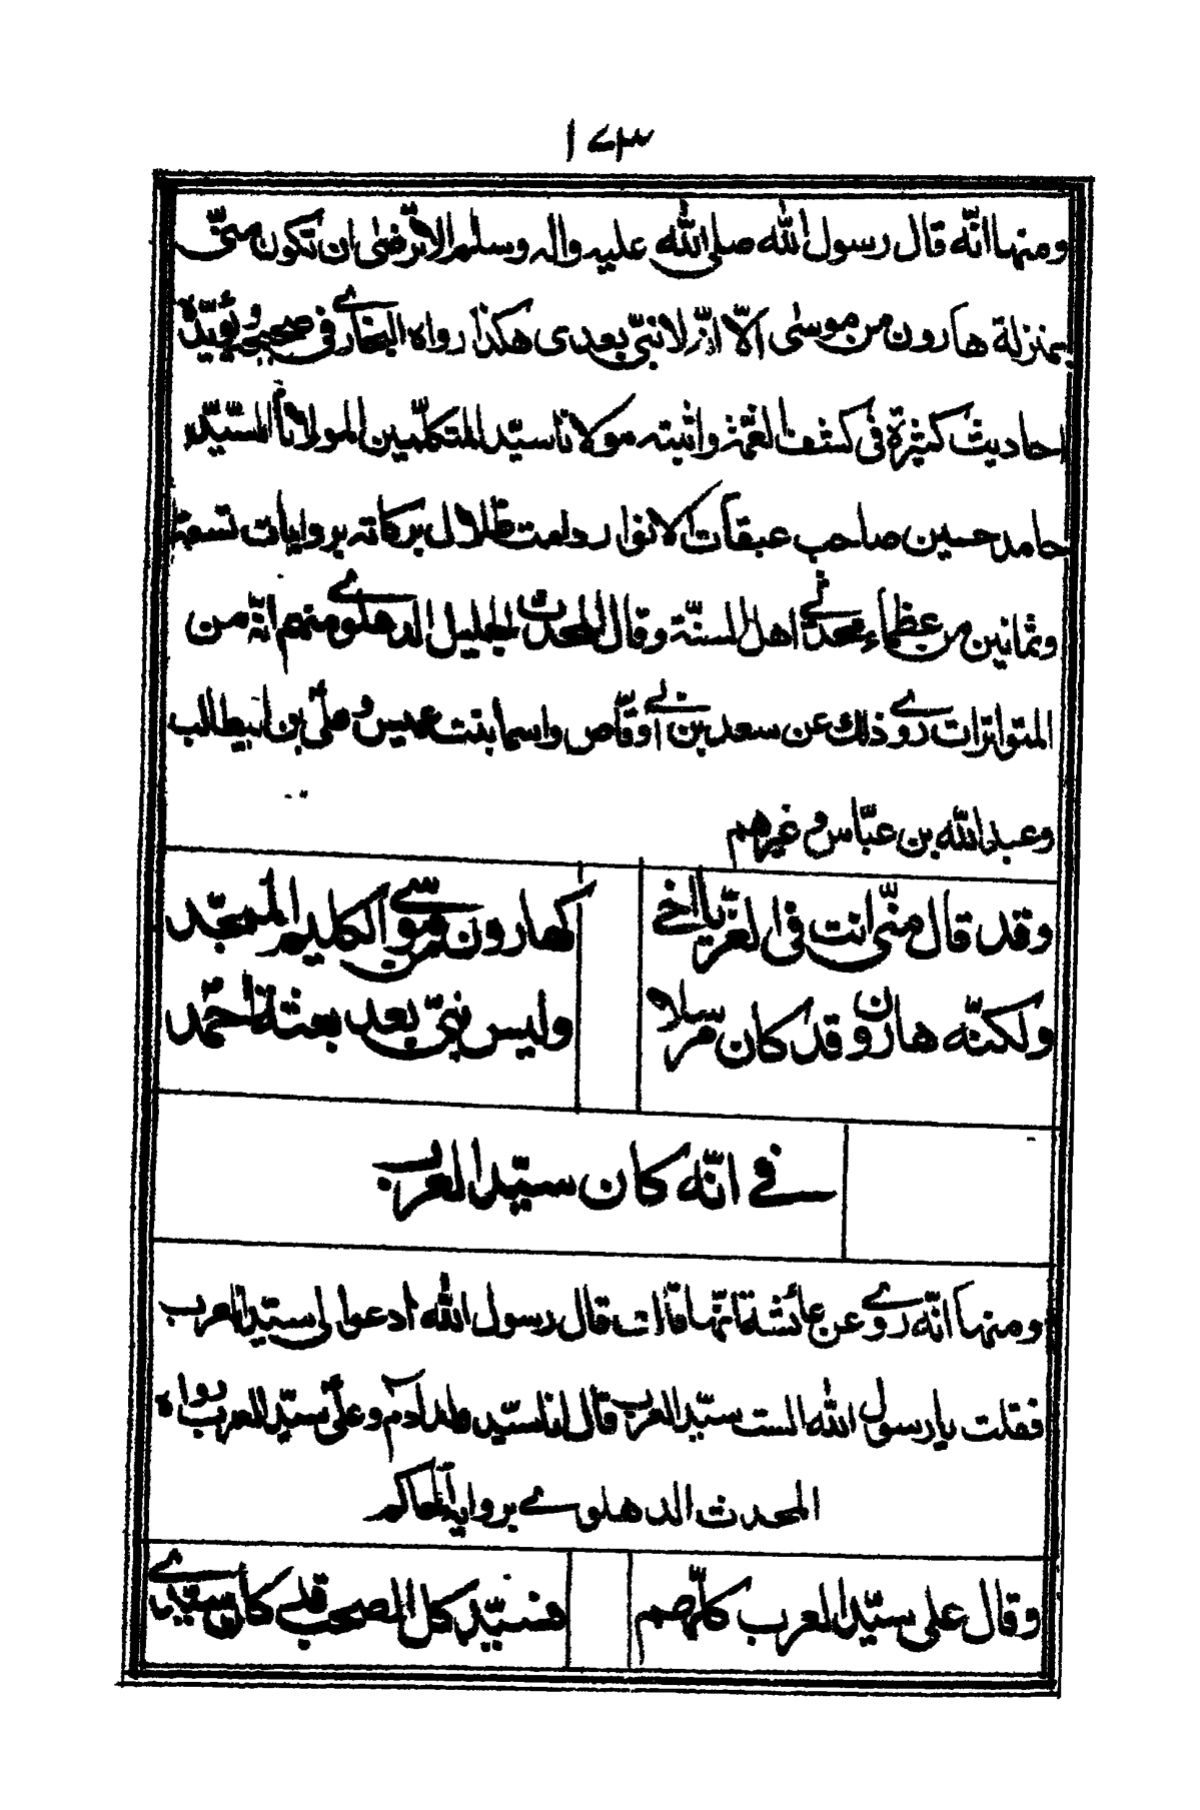 ١٧٣
ومنها انّه قال رسول الله صلى الله عليه واله وسلم الا ترضى ان تكون منّى
بمنزلة هارون من موسى الّا انّه لا نبىّ بعدى هكذا رواه البخارے فى صحيحه ويؤيّده
احاديث كثيرة فى كشف الغمّه واثبته مولانا سيّد المتكلّمين المولانا السيّد
حامد حسين صاحب عبقات الانوار دامت ظلال بركاته بروايات تسعة
وثمانين من عظماء محدثے اهل السنّة وقال المحدث الجليل الدهلوے منهم انّه من
المتواترات روے ذلك عن سعد بن ابے وقّاص واسما بنت عميس وعلىّ بن ابيطالب
وعبد الله بن عبّاس وغيرهم
وقد قال منّى انت فى العزّ يا اخے
كهارون من موسے الكليم الممجّد
ولكنّه هارون قد كان مرسلا
وليس نبىّ بعد بعثة احمد
فے انّه كان سيّد العرب
ومنها انّه روے عن عائشة انّها قالت قال رسول الله ادعوا لى سيّد العرب
فقلت يا رسول الله الست سيّد العرب قال انا سيّد ولد آدم وعلىّ سيّد العرب رواه
المحدث الدهلوے برواية الحاكم
وقال على سيّد العرب كلّهم
فسيّد كل الصحب قد كان سيّدے